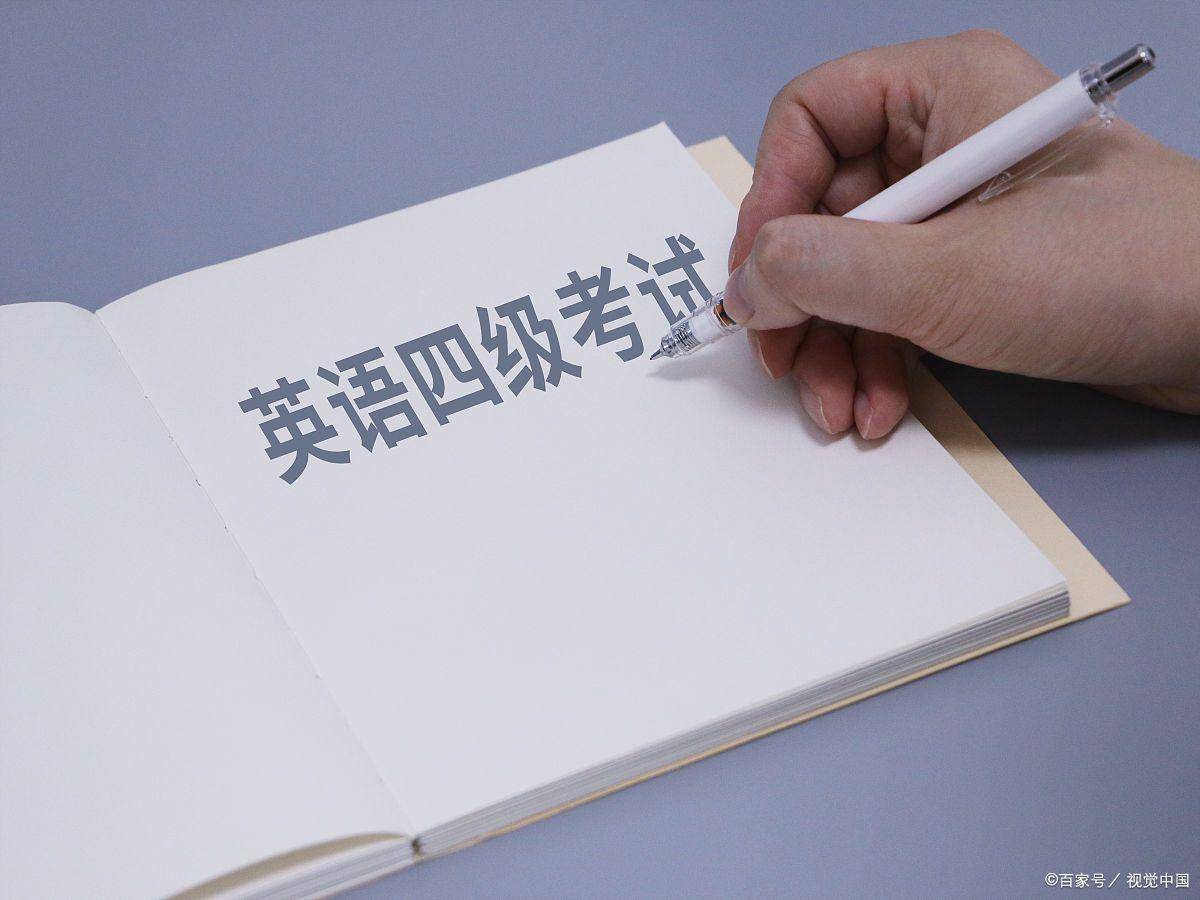 英语四级考试
©百家号／视觉中国